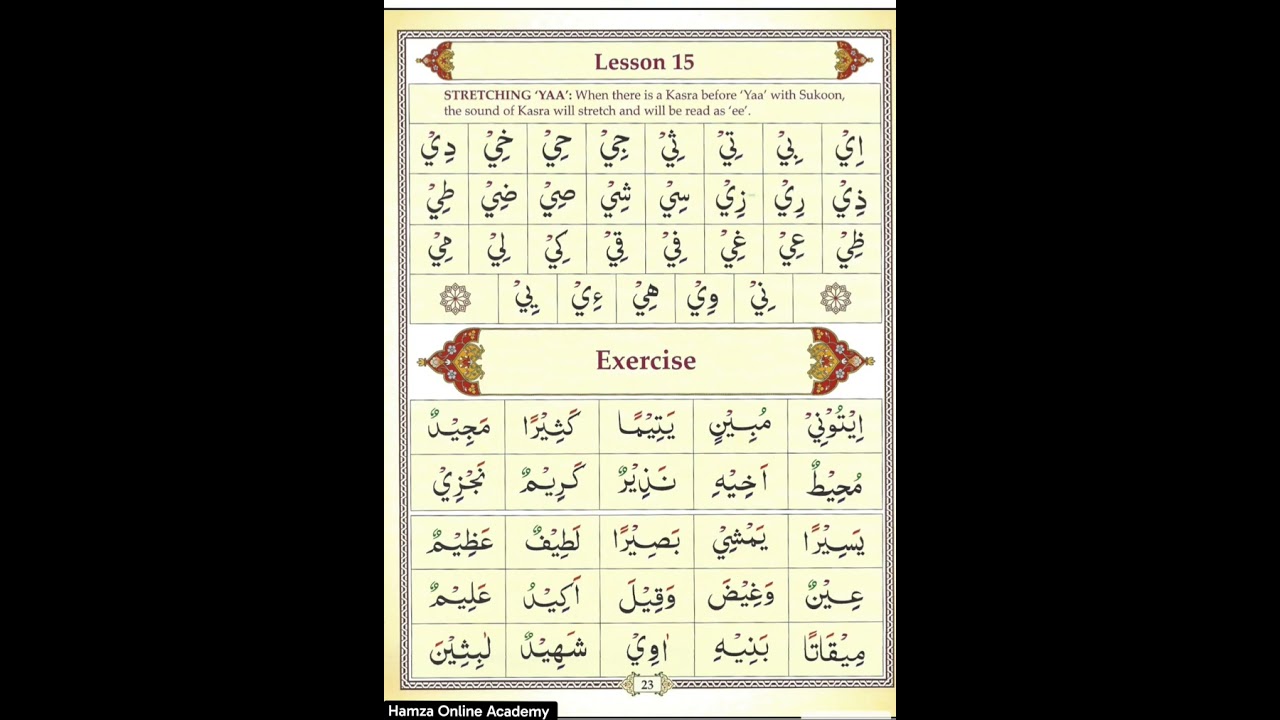 Lesson 15
STRETCHING ‘YAA’: When there is a Kasra before ‘Yaa’ with Sukoon,
the sound of Kasra will stretch and will be read as ‘ee’.
اِيْ بِيْ تِيْ ثِيْ جِيْ حِيْ خِيْ دِيْ
ذِيْ رِيْ زِيْ سِيْ شِيْ صِيْ ضِيْ طِيْ
ظِيْ عِيْ غِيْ فِيْ قِيْ كِيْ لِيْ مِيْ
نِيْ وِيْ هِيْ ءِيْ يِيْ
Exercise
اِيْتُوْنِيْ مُبِيْنٍ يَتِيْمًا كَثِيْرًا مَجِيْدٌ
مُحِيْطٌ اَخِيْهِ نَذِيْرٌ كَرِيْمٌ نَجْزِيْ
يَسِيْرًا يَمْشِيْ بَصِيْرًا لَطِيْفٌ عَظِيْمٌ
عِيْنٌ وَغِيْضَ وَقِيْلَ اَكِيْدُ عَلِيْمٌ
مِيْقَاتًا بَنِيْهِ اٰوِيْ شَهِيْدٌ لٰبِثِيْنَ
23
Hamza Online Academy